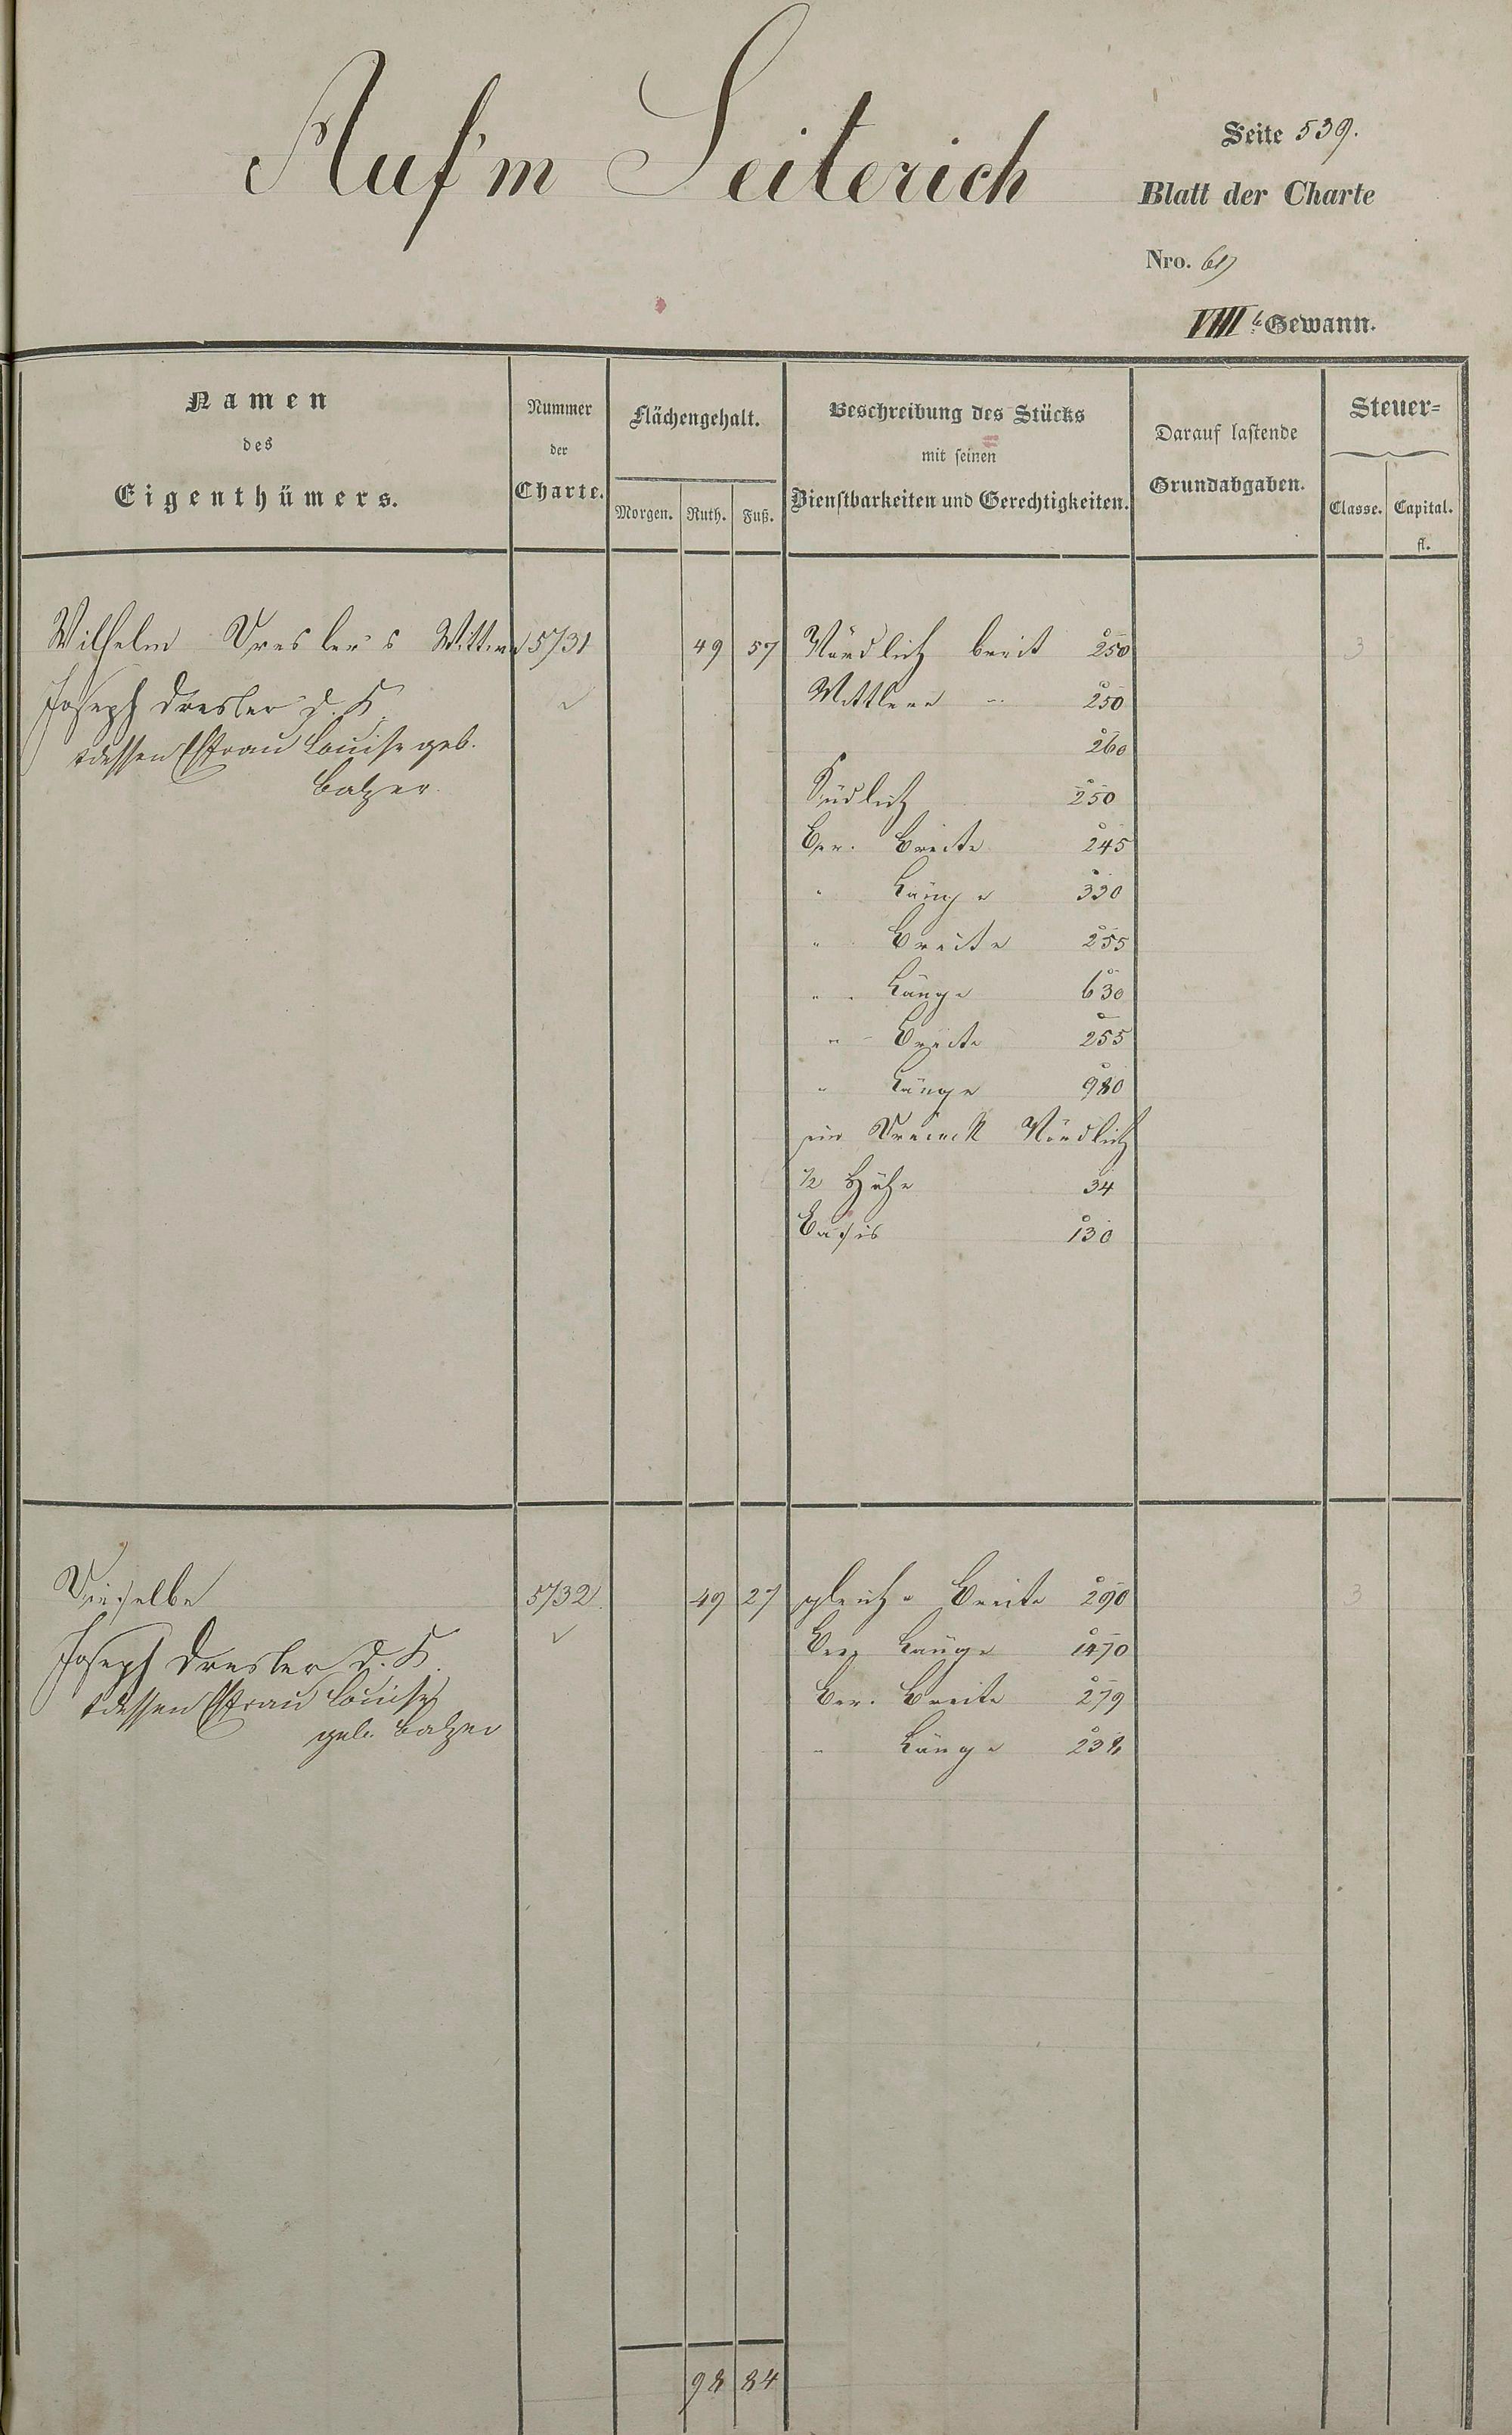 Auf'm Seiterich
Seite 539.
Blatt der Charte
Nro. 61
VIIIte Gewann.
Namen
des
Eigenthümers.
Nummer
der
Charte.
Flächengehalt.
Morgen. Ruth. Fuß.
Beschreibung des Stücks
mit seinen
Dienstbarkeiten und Gerechtigkeiten.
Darauf lastende
Grundabgaben.
Steuer-
Classe. Capital.
fl.
Wilhelm Dresler's Wittwe 5731 49 57 Nördlich breit 250 3
Joseph Dresler d. K. Mittlere " 250
& dessen Efrau Louise geb. 260
Balzer. Südlich 250
Ber. Breite 245
" Länge 330
" Breite 255
" Länge 630
" Breite 255
" Länge 980
ein Dreieck Nördlich
1/2 Höhe 34
Basis 130
Dieselbe 5732 49 27 gleiche Breite 290 3
Joseph Dresler d. K. Ber. Länge 1470
& dessen Efrau Louise Ber. Breite 279
geb. Balzer " Länge 238
98 84